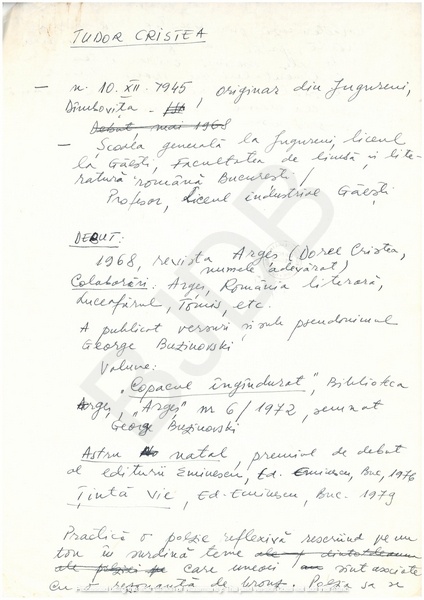 TUDOR CRISTEA
— n. 10.XII.1945, originar din Jugureni,
Dîmbovița
Debut, mai 1968
— Școala generală la Jugureni, liceul
la Găești, Facultatea de limbă și lite-
ratură română București /
Profesor, Liceul industrial Găești
DEBUT:
1968, revista Argeș (Dorel Cristea,
numele adevărat)
Colaborări: Argeș, România literară,
Luceafărul, Tomis, etc.
A publicat versuri și sub pseudonimul
George Buzinovski
Volume:
"Copacul îngîndurat", Biblioteca
Argeș, "Argeș" nr 6/1972, semnat
George Buzinovski
Astru natal, premiul de debut
al editurii Eminescu, Ed. Eminescu, Buc, 1976
Țintă vie, Ed. Eminescu, Buc. 1979
Practică o poezie reflexivă rescriind pe un
ton în surdină teme care uneori sînt asociate
cu o rezonanță de bronz. Poezia sa se
BJDB